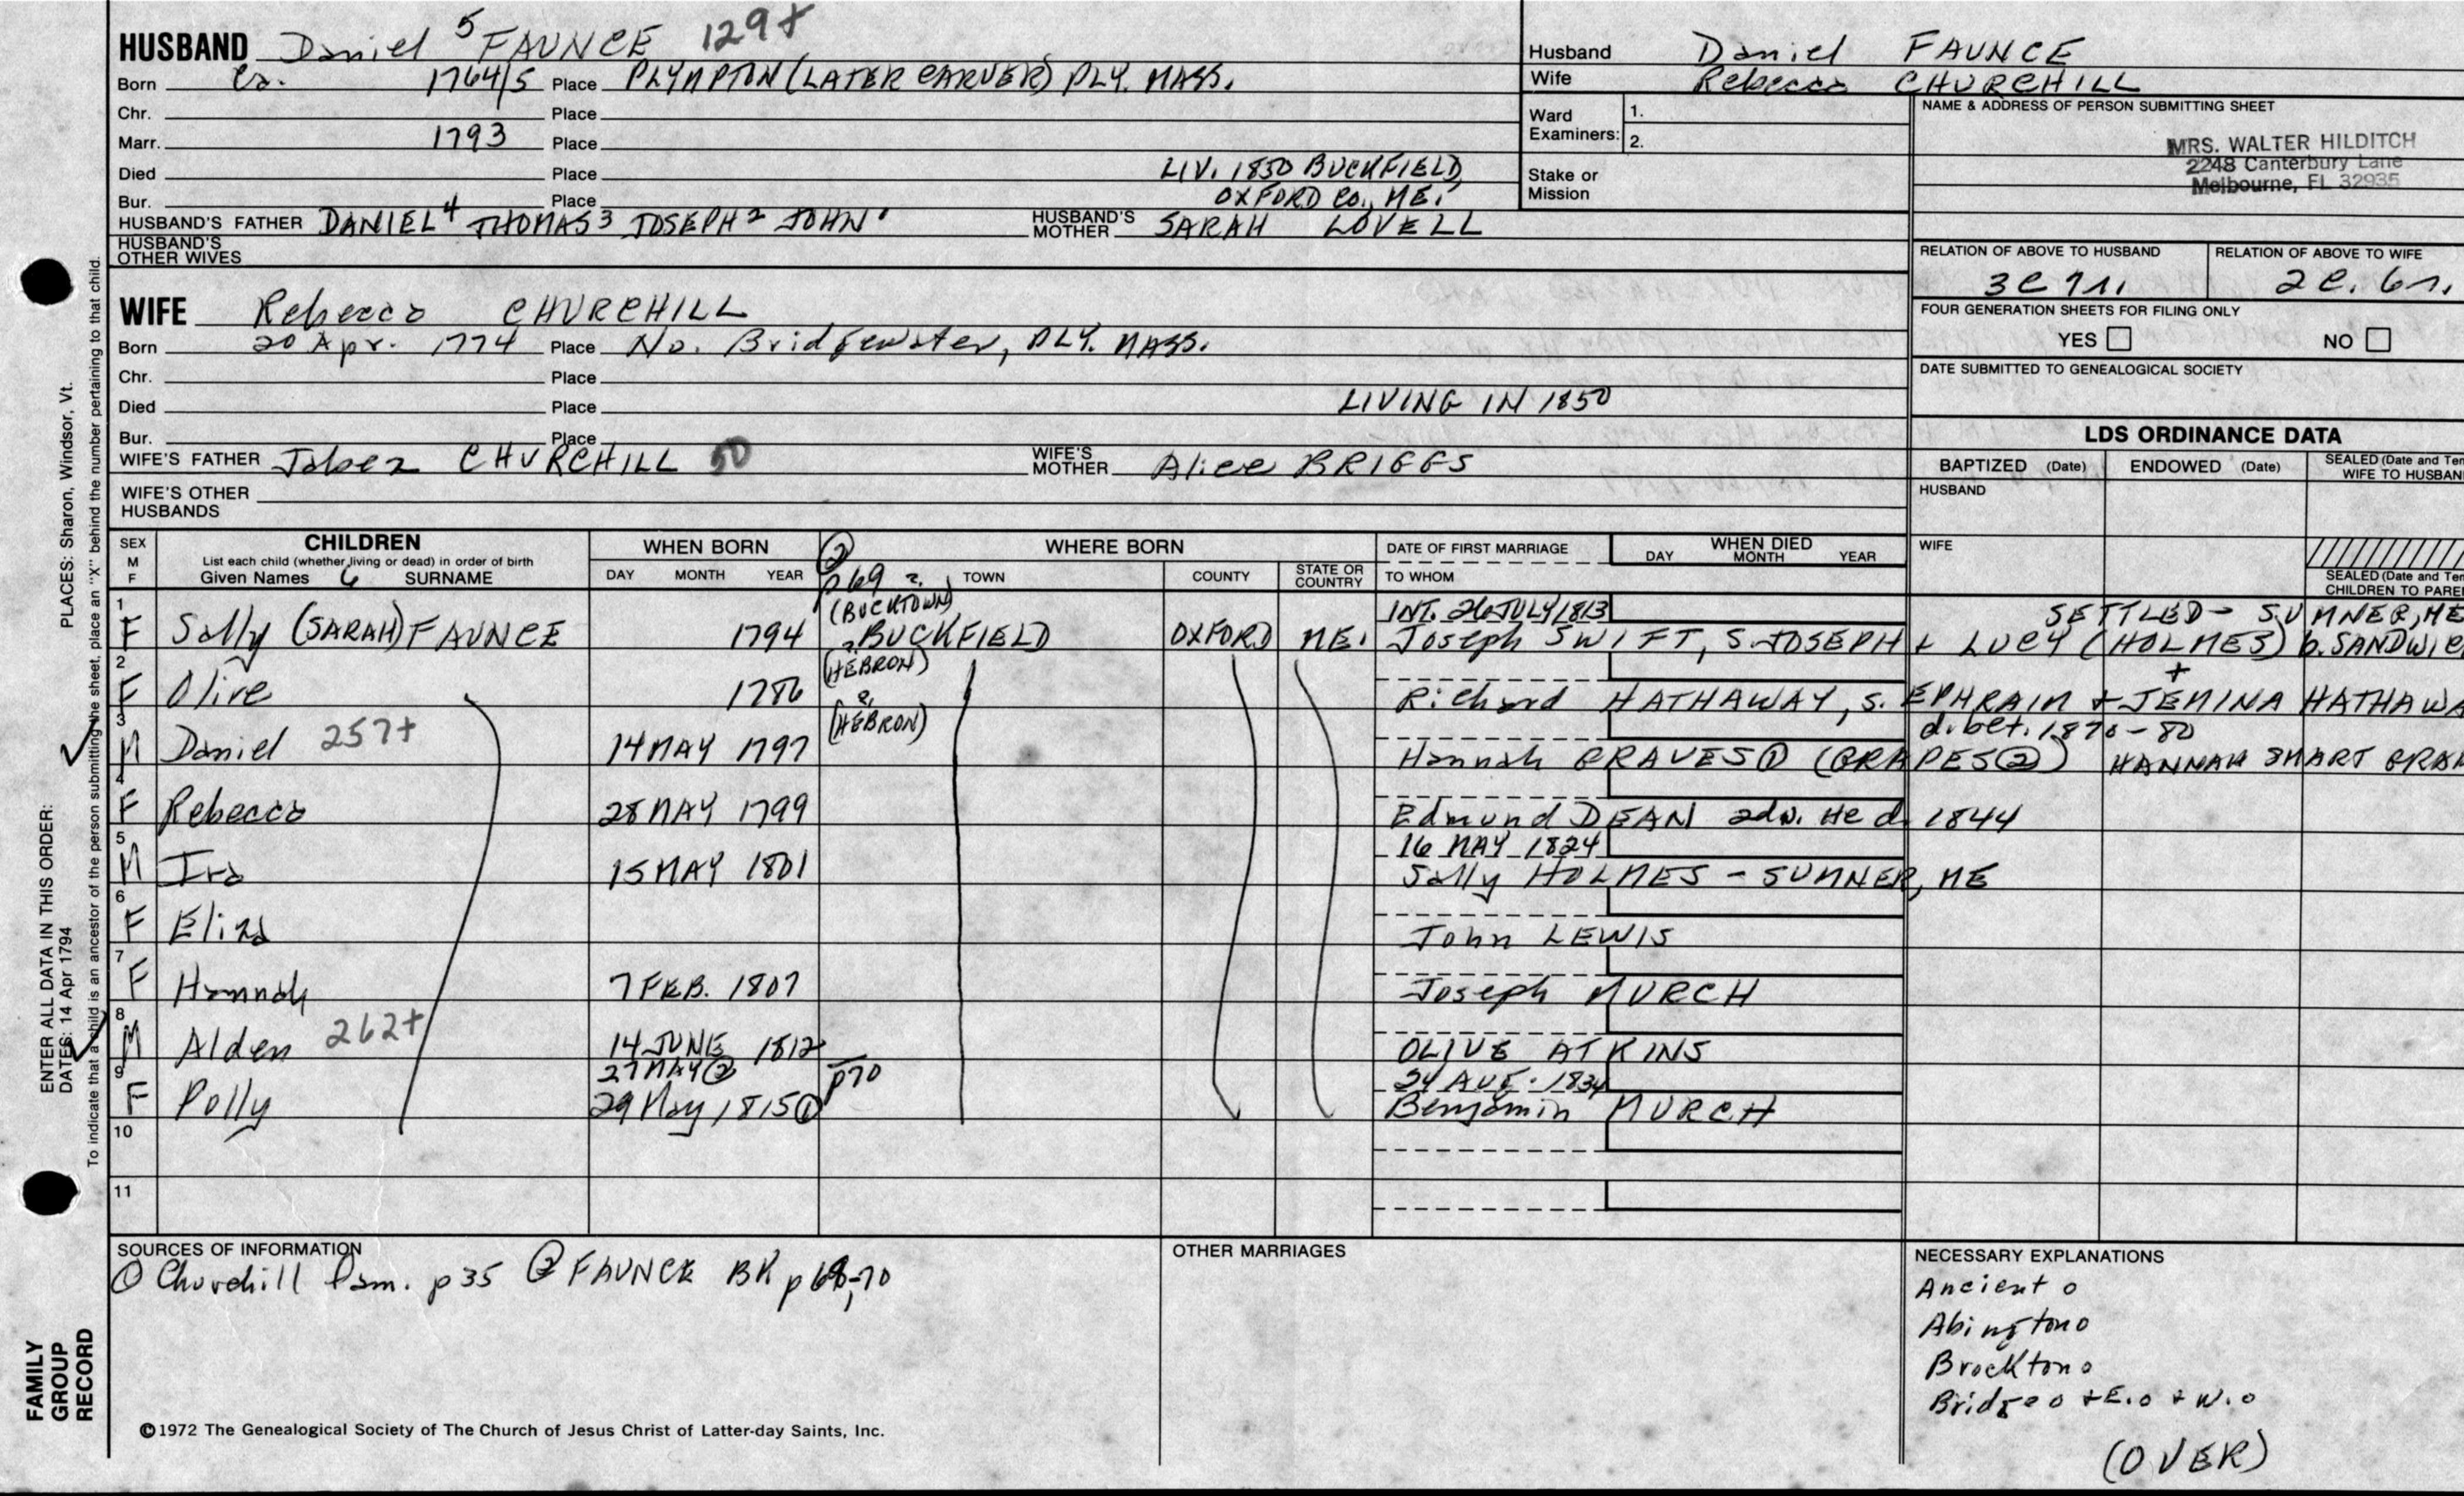 HUSBAND Daniel 5 FAUNCE 129+
Born Ca. 1764/5 Place PLYMPTON (LATER CARVER) PLY. MASS.
Chr. Place
Marr. 1793 Place
Died Place LIV. 1850 BUCKFIELD,
Bur. Place OXFORD CO., ME.
HUSBAND'S FATHER DANIEL4 THOMAS3 JOSEPH2 JOHN1 HUSBAND'S MOTHER SARAH LOVELL
HUSBAND'S OTHER WIVES
Husband Daniel FAUNCE
Wife Rebecca CHURCHILL
Ward Examiners: 1.
2.
Stake or Mission
NAME & ADDRESS OF PERSON SUBMITTING SHEET
MRS. WALTER HILDITCH
2248 Canterbury Lane
Melbourne, FL 32935
RELATION OF ABOVE TO HUSBAND RELATION OF ABOVE TO WIFE
3C 7r. 2C. 6r.
FOUR GENERATION SHEETS FOR FILING ONLY
YES NO
DATE SUBMITTED TO GENEALOGICAL SOCIETY
WIFE Rebecca CHURCHILL
Born 20 Apr. 1774 Place No. Bridgewater, PLY. MASS.
Chr. Place
Died Place LIVING IN 1850
Bur. Place
WIFE'S FATHER Jabez CHURCHILL 50 WIFE'S MOTHER Alice BRIGGS
WIFE'S OTHER HUSBANDS
LDS ORDINANCE DATA
BAPTIZED (Date) ENDOWED (Date) SEALED (Date and Tem
WIFE TO HUSBAN
HUSBAND
WIFE
SEALED (Date and Tem
CHILDREN TO PARE
SEX M F CHILDREN WHEN BORN ② WHERE BORN DATE OF FIRST MARRIAGE WHEN DIED
List each child (whether living or dead) in order of birth
Given Names 6 SURNAME DAY MONTH YEAR p 69 TOWN COUNTY STATE OR COUNTRY TO WHOM DAY MONTH YEAR
(BUCKTOWN) INT. 26 JULY 1813 SETTLED - SUMNER, ME
1 F Sally (SARAH) FAUNCE 1794 BUCKFIELD OXFORD ME. Joseph SWIFT, S. JOSEPH + LUCY (HOLMES) b. SANDWIC
(HEBRON)
2 F Olive 1786 Richard HATHAWAY, S. EPHRAIM + JEMINA HATHAWA
(HEBRON) d. bet. 1870-80
3 M Daniel 257+ 14 MAY 1797 Hannah GRAVES① (GRAPES②) HANNAH SMART GRA
4 F Rebecca 28 MAY 1799 Edmund DEAN adw. He d. 1844
16 MAY 1824
5 M Ira 15 MAY 1801 Sally HOLMES - SUMNER, ME
6 F Eliza John LEWIS
7 F Hannah 7 FEB. 1807 Joseph MURCH
8 M Alden 262+ 14 JUNE 1812 OLIVE ATKINS
27 MAY② p70 24 AUG. 1834
9 F Polly 29 May 1815① Benjamin MURCH
10
11
SOURCES OF INFORMATION
① Churchill Fam. p 35 ② FAUNCE BK p 69,-70
OTHER MARRIAGES
NECESSARY EXPLANATIONS
Ancient o
Abington o
Brockton o
Bridge o + E. o + W. o
(OVER)
©1972 The Genealogical Society of The Church of Jesus Christ of Latter-day Saints, Inc.
PLACES: Sharon, Windsor, Vt.
ENTER ALL DATA IN THIS ORDER:
DATES: 14 Apr 1794
To indicate that a child is an ancestor of the person submitting the sheet, place an "X" behind the number pertaining to that child.
FAMILY
GROUP
RECORD